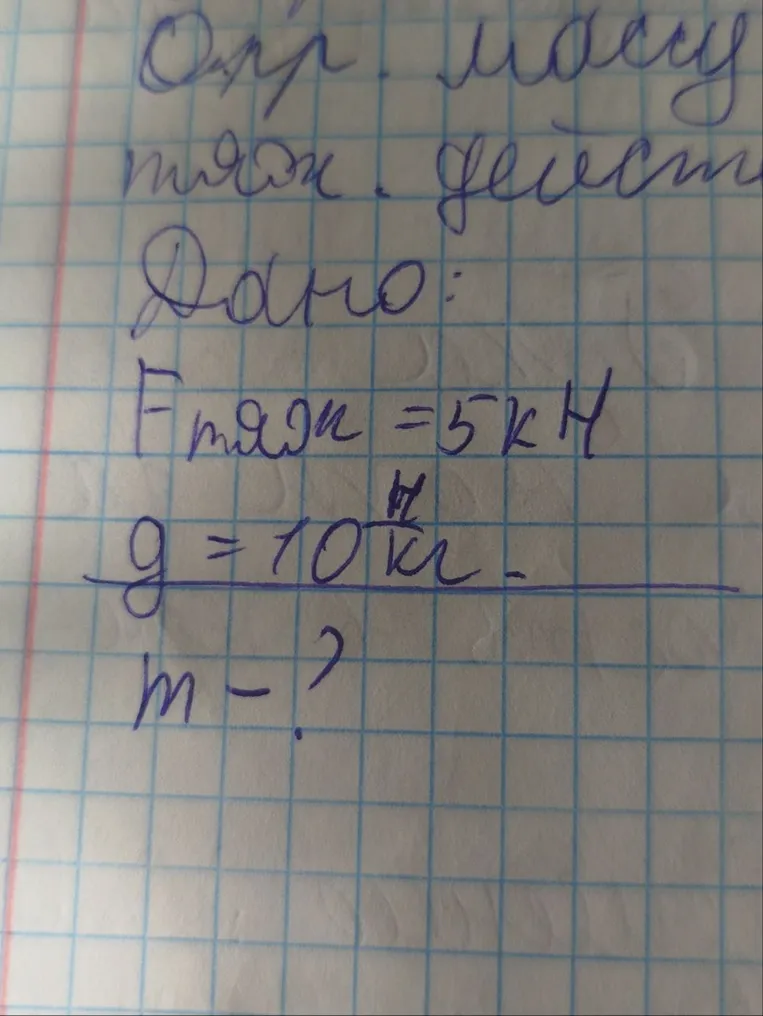 Опр. массу
тяж. дейст
Дано:
Fтяж = 5кН
g = 10 Н/кг.
m - ?